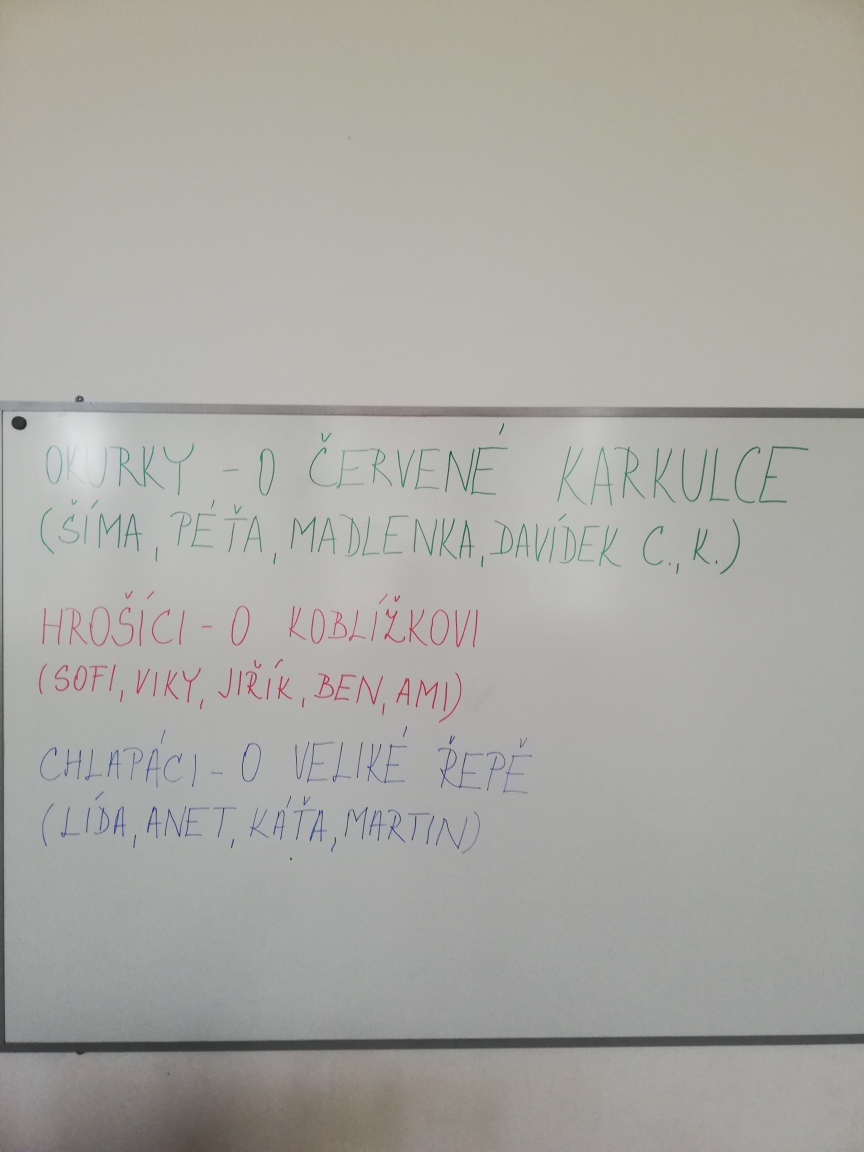 OKURKY - O ČERVENÉ KARKULCE
(ŠÍMA, PÉŤA, MADLENKA, DAVÍDEK C., K.)
HROŠÍCI - O KOBLÍŽKOVI
(SOFI, VIKY, JIŘÍK, BEN, AMI)
CHLAPÁCI - O VELIKÉ ŘEPĚ
(LÍDA, ANET, KÁŤA, MARTIN)